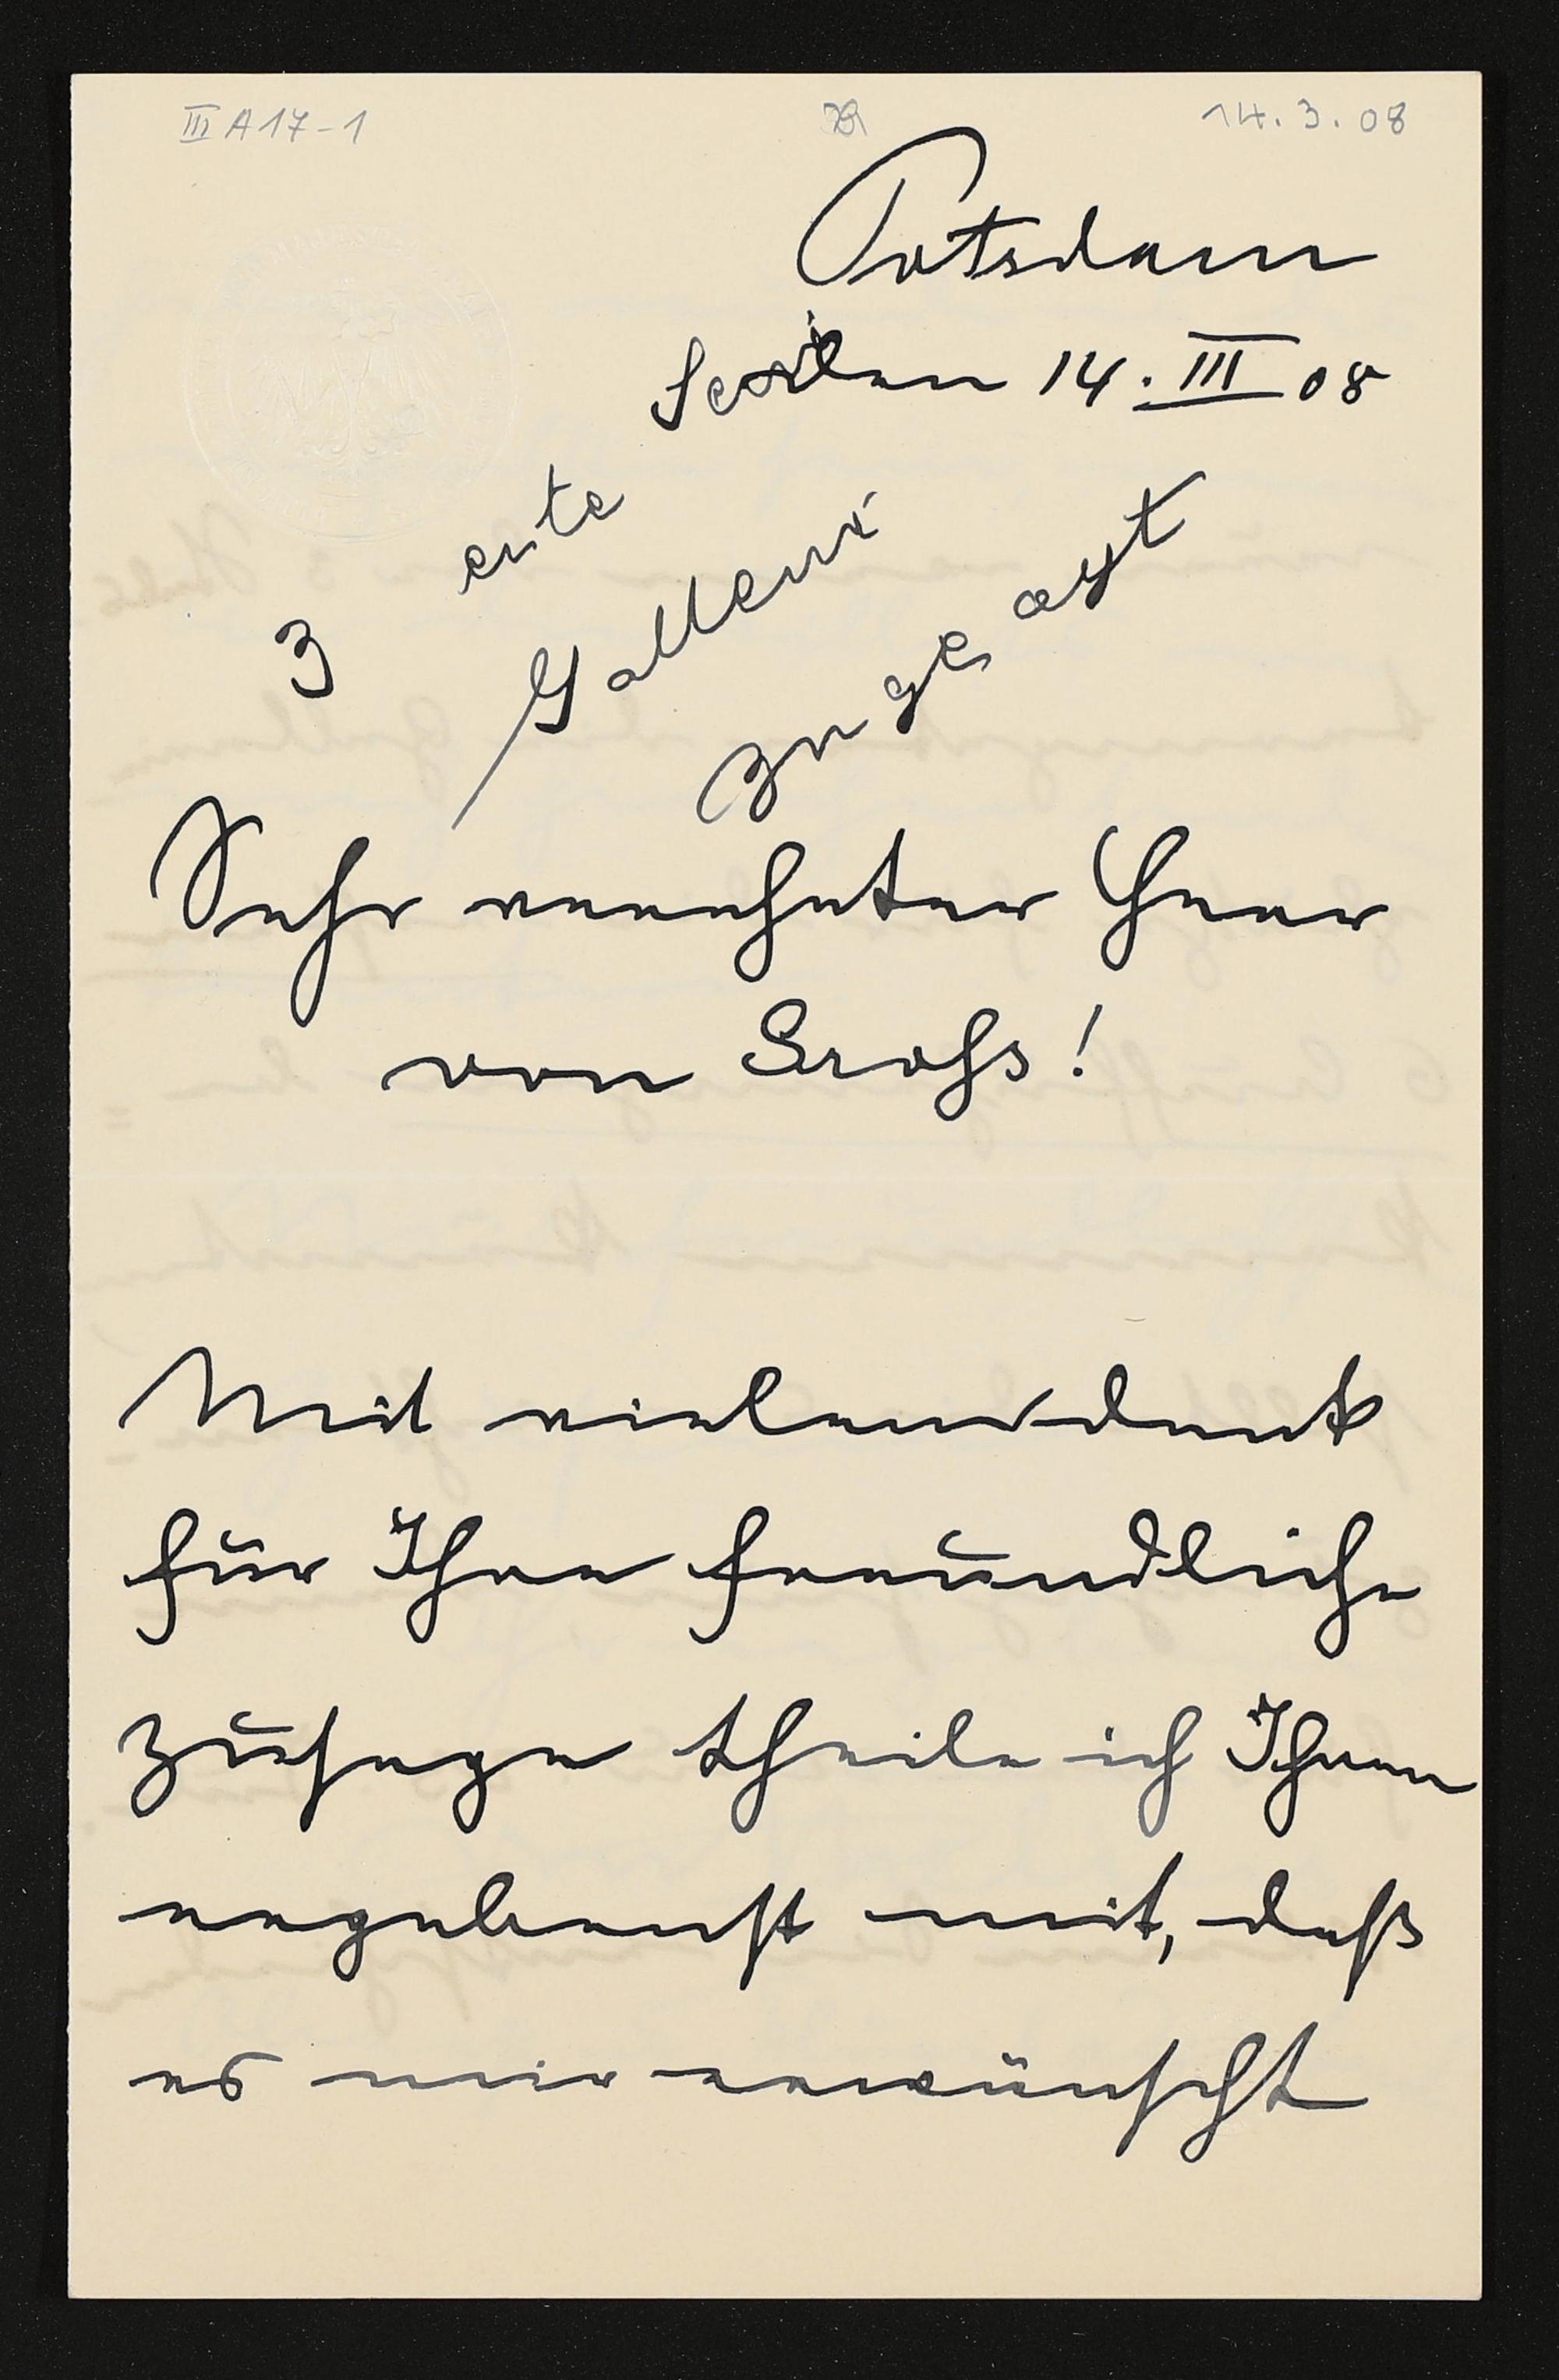 III A 17-1
14.3.08
Potsdam
14. III 08
3
Sehr verehrter Herr
von Groſs!
Mit vielem dank
für Ihre freundliche
zusage theile ich Ihnen
ergebenst mit, daß
es mir erwünscht